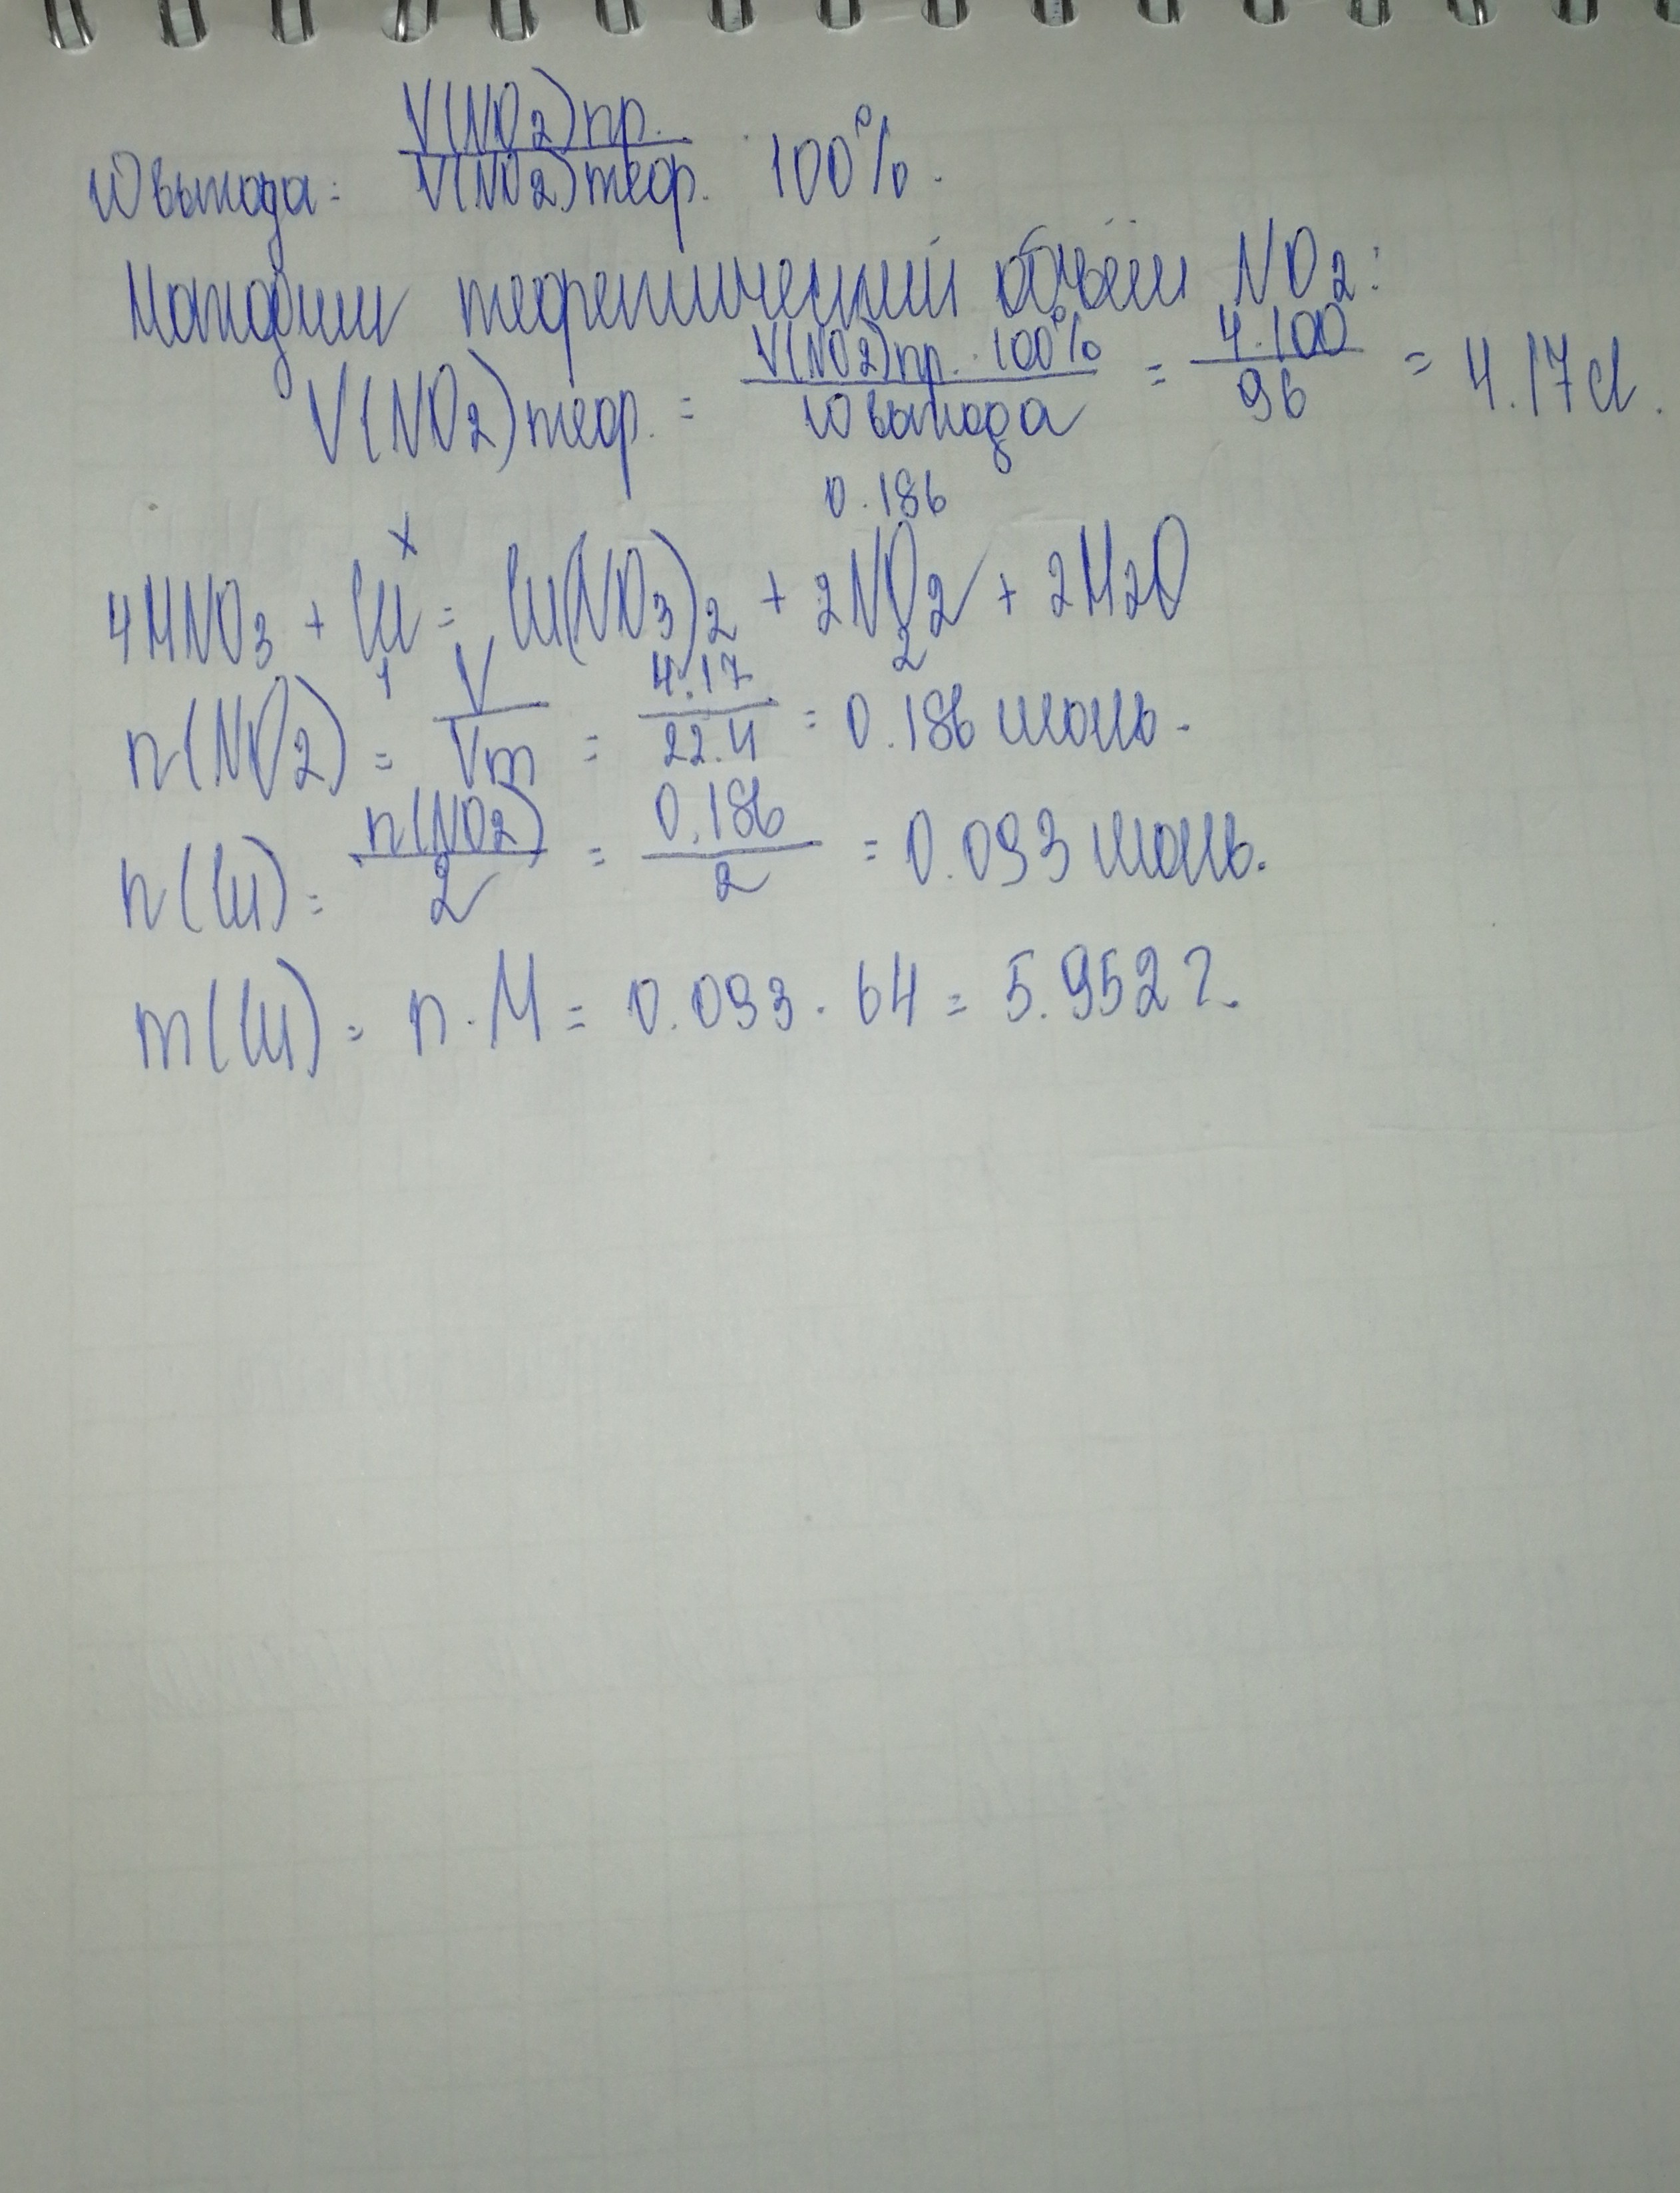 W выхода = V(NO2)пр. / V(NO2)теор. · 100%.
Находим теоретический объём NO2:
V(NO2)теор. = V(NO2)пр. · 100% / W выхода = 4·100 / 96 = 4.17 л.
x 0.186
4HNO3 + Cu = Cu(NO3)2 + 2NO2 + 2H2O
1 2
n(NO2) = V / Vm = 4.17 / 22.4 = 0.186 моль.
n(Cu) = n(NO2) / 2 = 0.186 / 2 = 0.093 моль.
m(Cu) = n · M = 0.093 · 64 = 5.952 г.